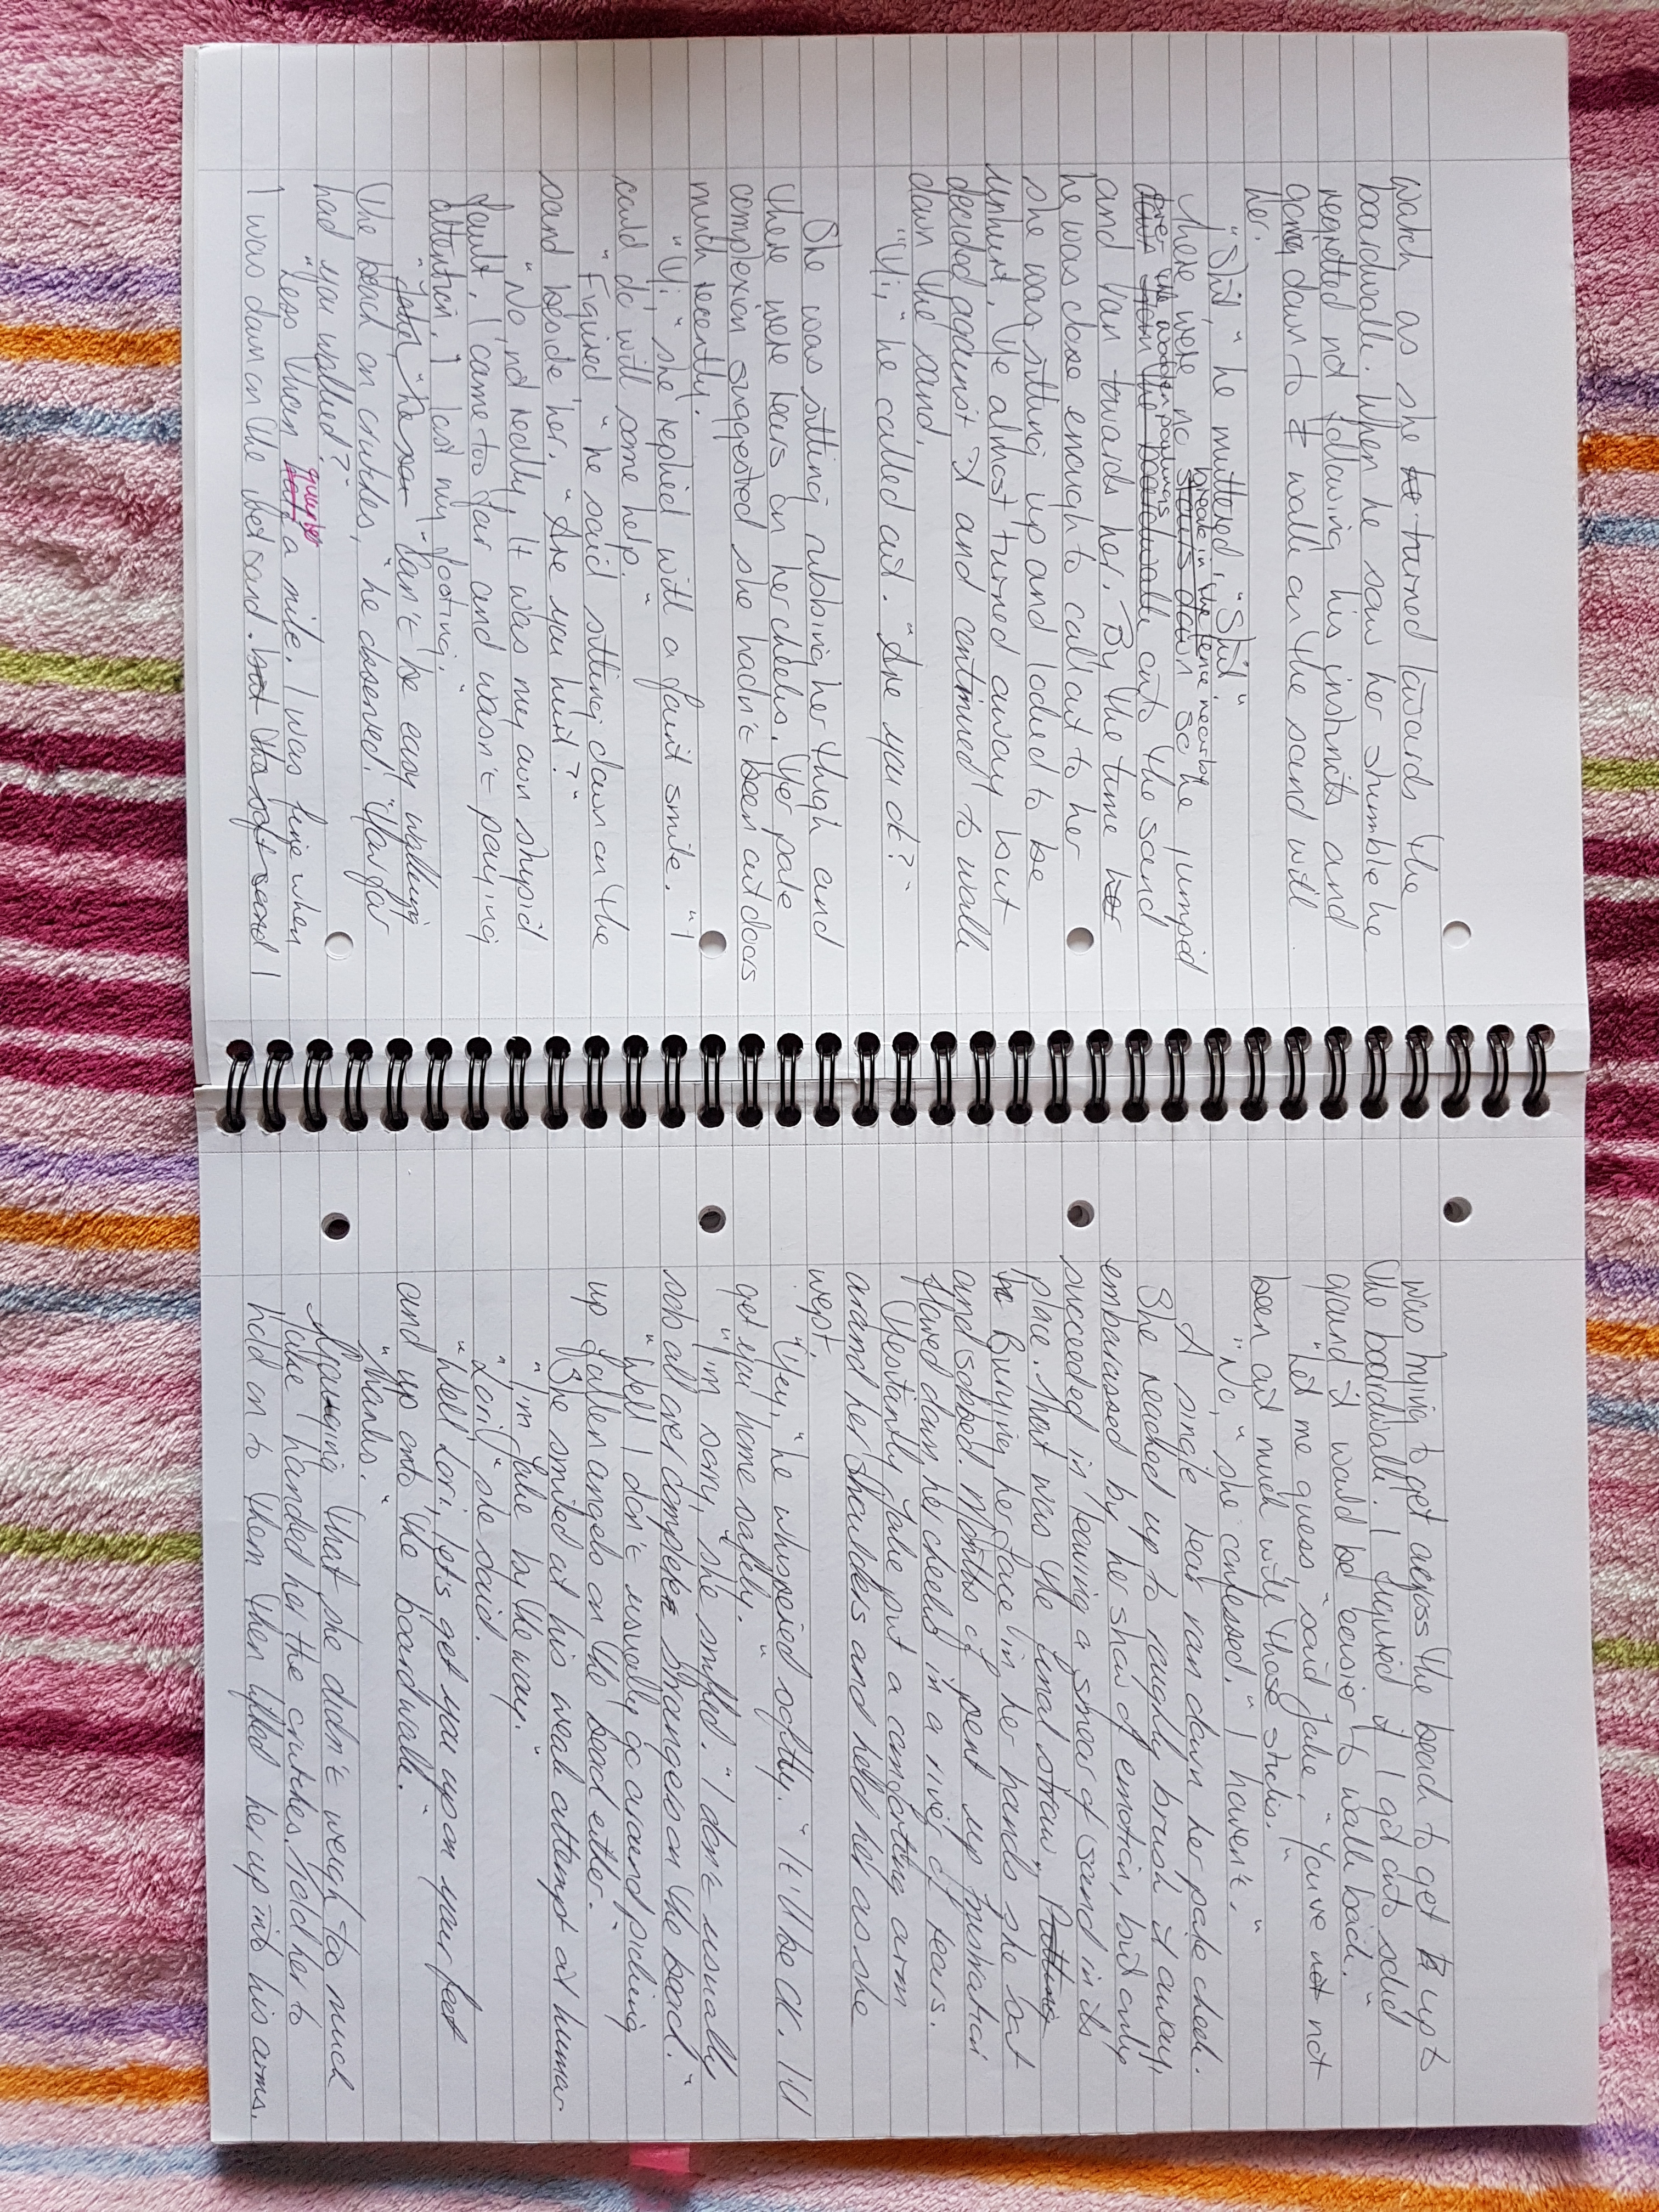 watch as she turned towards the
boardwalk. When he saw her stumble he
regretted not following his instincts and
going down to walk on the sand with
her.
"Shit," he muttered, "Shit."
break in the fence nearby
There were no stairs down so he jumped
over the wooden palings
down from the boardwalk onto the sand
and ran towards her. By the time her
he was close enough to call out to her
she was sitting up and looked to be
unhurt. He almost turned away but
decided against it and continued to walk
down the sand.
"Hi," he called out. "Are you ok?"
She was sitting rubbing her thigh and
there were tears on her cheeks. Her pale
complexion suggested she hadn't been outdoors
much recently.
"Hi," she replied with a faint smile. "I
could do with some help."
"Figured," he said sitting down on the
sand beside her. "Are you hurt?"
"No, not really. It was my own stupid
fault. I came too far and wasn't paying
attention. I lost my footing."
"Can't be easy walking
the sand on crutches," he observed. "How far
had you walked?"
quarter
"Less than half a mile. I was fine when
I was down on the wet sand. but the soft sand I
was trying to get across the beach to get to up to
the boardwalk. I figured if I got onto solid
ground it would be easier to walk back."
"Let me guess," said Jake, "You've not not
been out much with those sticks."
"No," she confessed. "I haven't."
A single tear ran down her pale cheek.
She reached up to roughly brush it away,
embarassed by her show of emotion, but only
succeeded in leaving a smear of sand in its
place. That was the final straw. Putting
her Burying her face in her hands she sat
and sobbed. Months of pent up frustration
flowed down her cheeks in a river of tears.
Hesitantly Jake put a comforting arm
around her shoulders and held her as she
wept.
"Hey," he whispered softly. "It'll be ok. I'll
get you home safely."
"I'm sorry," she sniffed. "I don't usually
sob all over complete strangers on the beach."
"Well I don't usually go around picking
up fallen angels on the sand either."
She smiled at his weak attempt at humor.
"I'm Jake by the way."
"Lori," she said.
"Well Lori, let's get you up on your feet
and up onto the boardwalk."
"Thanks."
Guessing that she didn't weigh too much
Jake handed her the crutches, told her to
hold on to them then lifted her up into his arms.